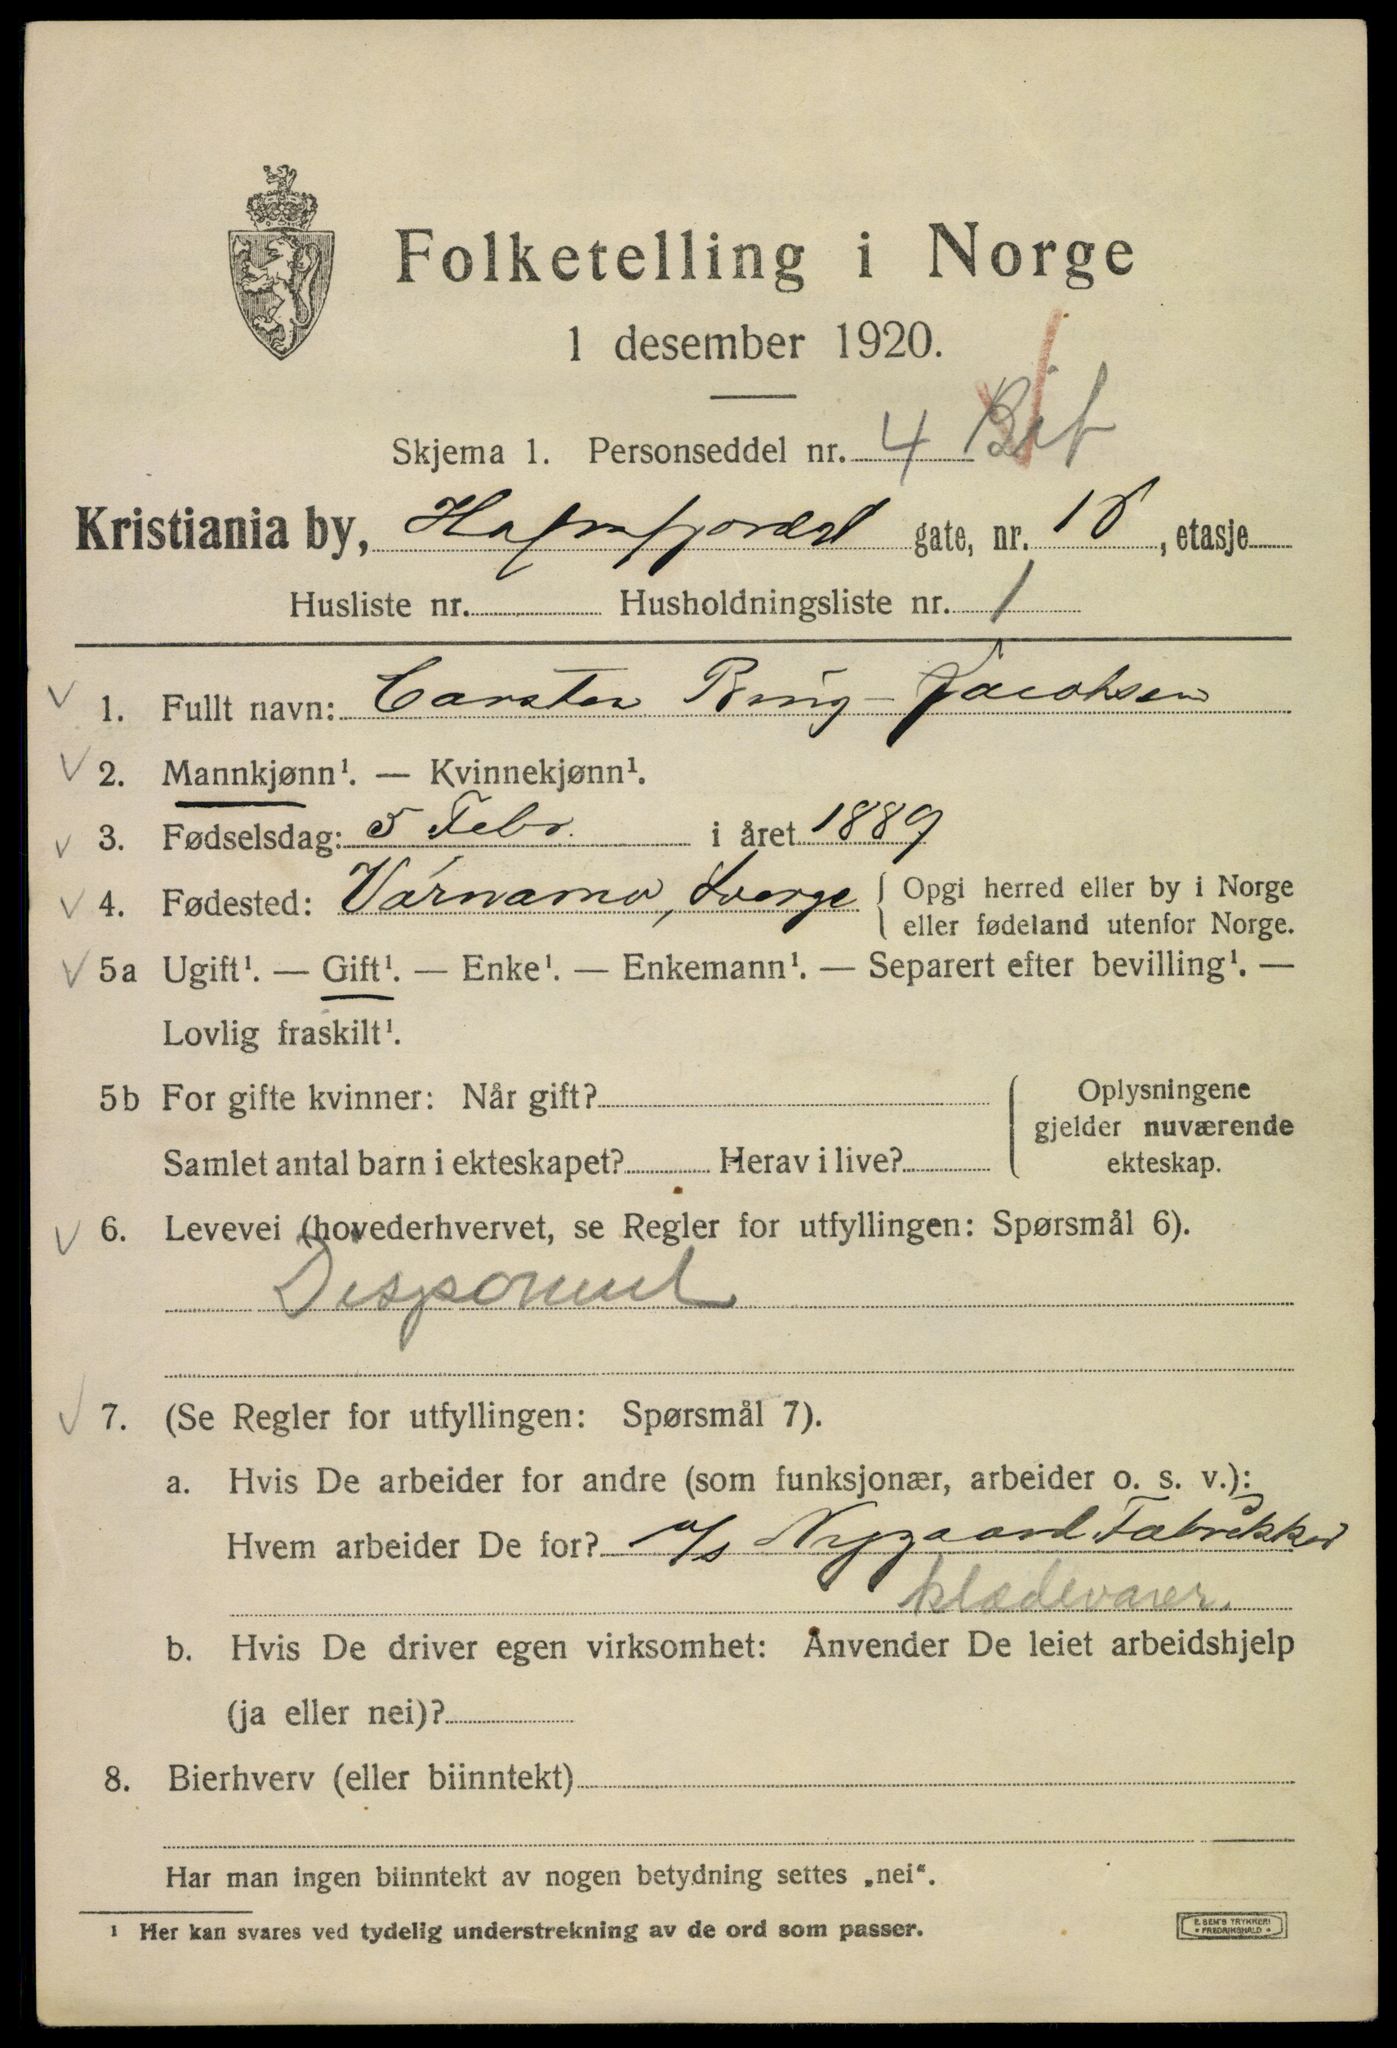 Folketelling i Norge
1 desember 1920.
Skjema 1. Personseddel nr. 4
Kristiania by, gate, nr. 18, etasje
Husliste nr. Husholdningsliste nr. 1
1. Fullt navn: Carsten Ring-Jacobsen
2. Mannkjønn¹. — Kvinnekjønn¹.
3. Fødselsdag: 5 Febr. i året 1889
4. Fødested: Värnamo, Sverge { Opgi herred eller by i Norge
eller fødeland utenfor Norge.
5a Ugift¹. — Gift¹. — Enke¹. — Enkemann¹. — Separert efter bevilling¹. —
Lovlig fraskilt¹.
5b For gifte kvinner: Når gift?
Samlet antal barn i ekteskapet? Herav i live?
Oplysningene
gjelder nuværende
ekteskap.
6. Levevei (hovederhvervet, se Regler for utfyllingen: Spørsmål 6).
Disponent
7. (Se Regler for utfyllingen: Spørsmål 7).
a. Hvis De arbeider for andre (som funksjonær, arbeider o. s. v.):
Hvem arbeider De for? a/s Nygaard Fabrikker
klædevarer.
b. Hvis De driver egen virksomhet: Anvender De leiet arbeidshjelp
(ja eller nei)?
8. Bierhverv (eller biinntekt)
Har man ingen biinntekt av nogen betydning settes „nei“.
¹ Her kan svares ved tydelig understrekning av de ord som passer.
E. SEM'S TRYKKERI
FREDRIKSHALD